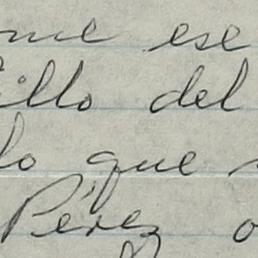 me ese
illo del
lo que
Pérez